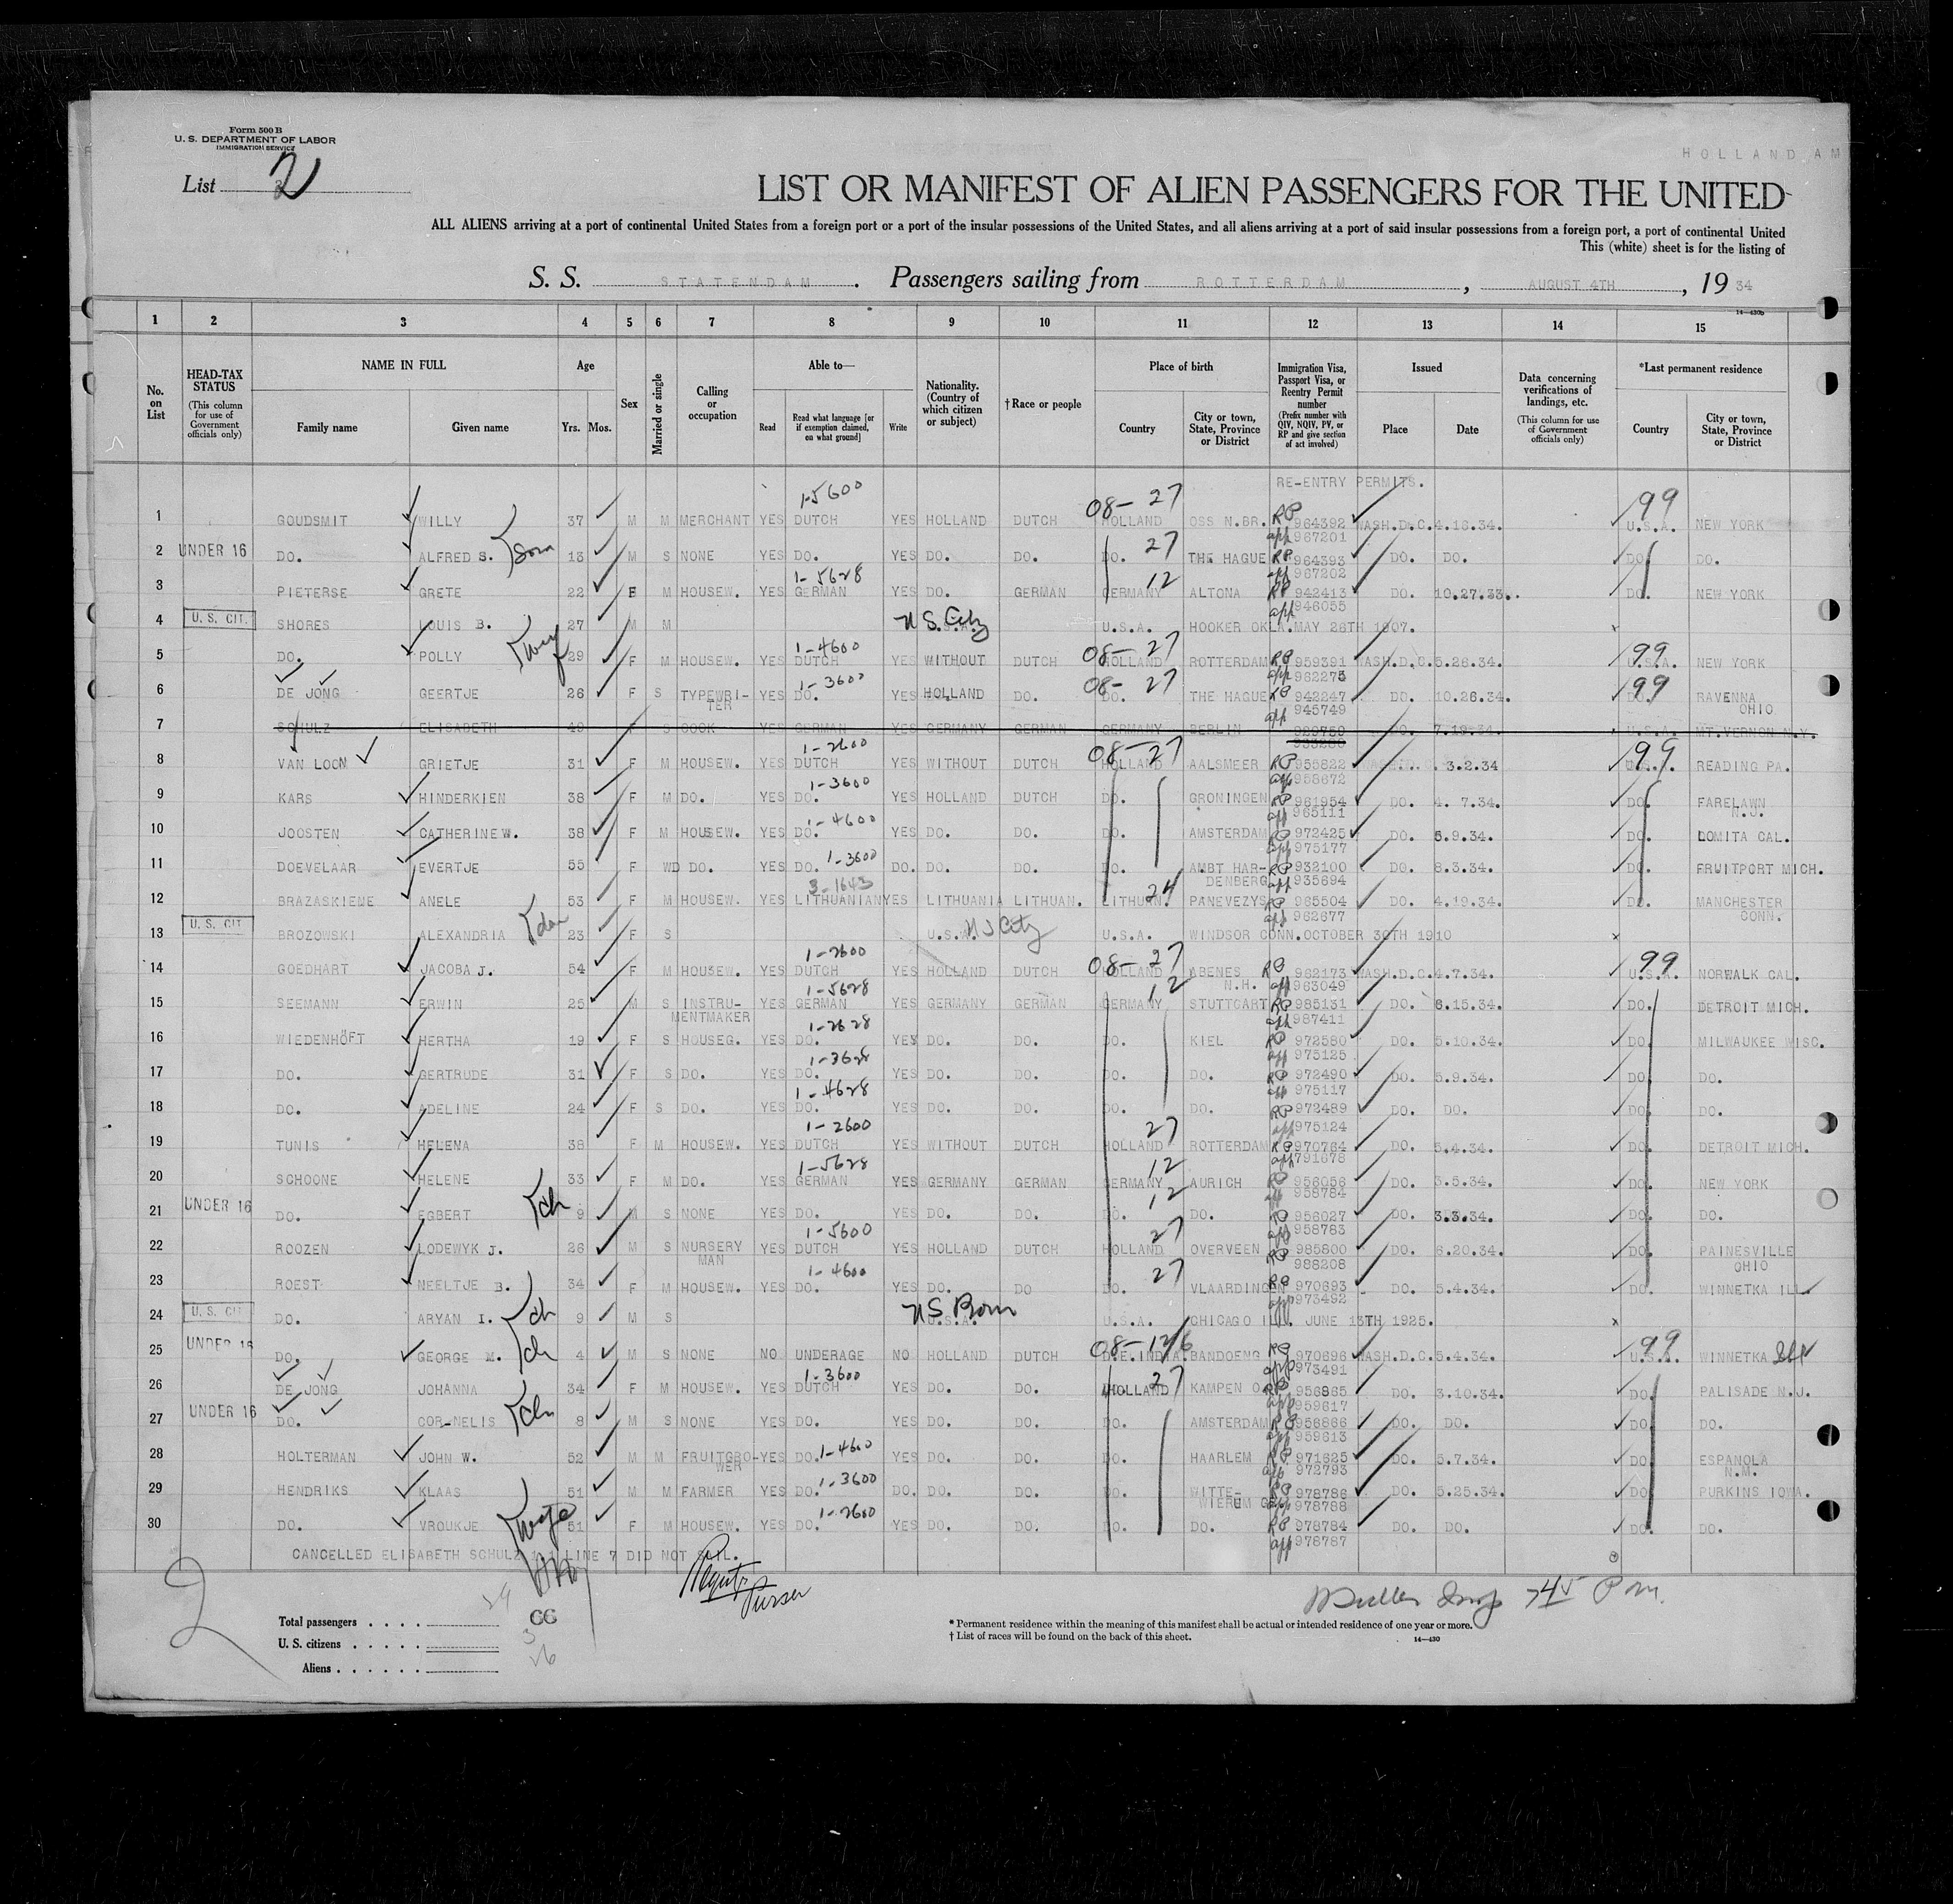 Form 500 B
U. S. DEPARTMENT OF LABOR
IMMIGRATION SERVICE
HOLLAND AM
List 2
LIST OR MANIFEST OF ALIEN PASSENGERS FOR THE UNITED
ALL ALIENS arriving at a port of continental United States from a foreign port or a port of the insular possessions of the United States, and all aliens arriving at a port of said insular possessions from a foreign port, a port of continental United
This (white) sheet is for the listing of
S. S. STATENDAM. Passengers sailing from ROTTERDAM, AUGUST 4TH, 1934
14-430b
1 2 3 4 5 6 7 8 9 10 11 12 13 14 15
No. on List
HEAD-TAX STATUS (This column for use of Government officials only)
NAME IN FULL Family name Given name
Age Yrs. Mos.
Sex
Married or single
Calling or occupation
Able to— Read Read what language [or if exemption claimed, on what ground] Write
Nationality. (Country of which citizen or subject)
†Race or people
Place of birth Country City or town, State, Province or District
Immigration Visa, Passport Visa, or Reentry Permit number (Prefix number with QIV, NQIV, PV, or RP and give section of act involved)
Issued Place Date
Data concerning verifications of landings, etc. (This column for use of Government officials only)
*Last permanent residence Country City or town, State, Province or District
RE-ENTRY PERMITS.
1 GOUDSMIT WILLY 37 M M MERCHANT YES 1-5600 DUTCH YES HOLLAND DUTCH 08-27 HOLLAND OSS N.BR. RP 964392 app 967201 WASH.D.C. 4.18.34. 99 U.S.A. NEW YORK
2 UNDER 16 DO. ALFRED S. son 13 M S NONE YES DO. YES DO. DO. DO. 27 THE HAGUE RP 964393 app 967202 DO. DO. DO. DO.
3 PIETERSE GRETE 22 F M HOUSEW. YES 1-5628 GERMAN YES DO. GERMAN GERMANY 12 ALTONA RP 942413 app 946055 DO. 10.27.33. DO. NEW YORK
4 U.S. CIT. SHORES LOUIS B. 27 M M U.S.A. US City U.S.A. HOOKER OKLA. MAY 28TH 1907. x
5 DO. POLLY wife 29 F M HOUSEW. YES 1-4600 DUTCH YES WITHOUT DUTCH 08-27 HOLLAND ROTTERDAM RP 959391 app 962275 WASH.D.C. 5.26.34. 99 U.S.A. NEW YORK
6 DE JONG GEERTJE 26 F S TYPEWRI-TER YES 1-3600 DO. YES HOLLAND DO. 08-27 DO. THE HAGUE RP 942247 app 945749 DO. 10.26.34. 99 DO. RAVENNA OHIO
7 SCHULZ ELISABETH 49 F S COOK YES GERMAN YES GERMANY GERMAN GERMANY BERLIN DO. 7.19.34. U.S.A. MT.VERNON N.Y.
8 VAN LOON GRIETJE 31 F M HOUSEW. YES 1-2600 DUTCH YES WITHOUT DUTCH 08-27 HOLLAND AALSMEER RP 955822 app 958672 3.2.34 99 U.S.A. READING PA.
9 KARS HINDERKIEN 38 F M DO. YES 1-3600 DO. YES HOLLAND DUTCH DO. GRONINGEN RP 961954 app 965111 DO. 4. 7.34. DO. FARELAWN N.J.
10 JOOSTEN CATHERINE W. 38 F M HOUSEW. YES 1-4600 DO. YES DO. DO. DO. AMSTERDAM RP 972425 app 975177 DO. 5.9.34. DO. LOMITA CAL.
11 DOEVELAAR EVERTJE 55 F WD DO. YES 1-3600 DO. DO. DO. DO. DO. AMBT HAR-DENBERG RP 932100 app 935694 DO. 8.3.34. DO. FRUITPORT MICH.
12 BRAZASKIENE ANELE 53 F M HOUSEW. YES 3-1643 LITHUANIAN YES LITHUANIA LITHUAN. LITHUAN. 24 PANEVEZYS RP 965504 app 962677 DO. 4.19.34. DO. MANCHESTER CONN.
13 U.S. CIT BROZOWSKI ALEXANDRIA dau 23 F S U.S.A. US City U.S.A. WINDSOR CONN. OCTOBER 30TH 1910 x
14 GOEDHART JACOBA J. 54 F M HOUSEW. YES 1-2600 DUTCH YES HOLLAND DUTCH 08-27 HOLLAND ABENES N.H. RP 962173 app 963049 WASH.D.C. 4.7.34. 99 U.S.A. NORWALK CAL.
15 SEEMANN ERWIN 25 M S INSTRU-MENTMAKER YES 1-5628 GERMAN YES GERMANY GERMAN 12 GERMANY STUTTGART RP 985131 app 987411 DO. 6.15.34. DO. DETROIT MICH.
16 WIEDENHÖFT HERTHA 19 F S HOUSEG. YES 1-2628 DO. YES DO. DO. DO. KIEL RP 972580 app 975125 DO. 5.10.34. DO. MILWAUKEE WISC.
17 DO. GERTRUDE 31 F S DO. YES 1-3628 DO. YES DO. DO. DO. DO. RP 972490 app 975117 DO. 5.9.34. DO. DO.
18 DO. ADELINE 24 F S DO. YES 1-4628 DO. YES DO. DO. DO. DO. RP 972489 app 975124 DO. DO. DO. DO.
19 TUNIS HELENA 38 F M HOUSEW. YES 1-2600 DUTCH YES WITHOUT DUTCH 27 HOLLAND ROTTERDAM RP 970764 app 791678 DO. 5.4.34. DO. DETROIT MICH.
20 SCHOONE HELENE 33 F M DO. YES 1-5628 GERMAN YES GERMANY GERMAN 12 GERMANY AURICH RP 956056 app 958784 DO. 3.5.34. DO. NEW YORK
21 UNDER 16 DO. EGBERT ch 9 M S NONE YES DO. YES DO. DO. 12 DO. DO. RP 956027 app 958783 DO. 3.3.34. DO. DO.
22 ROOZEN LODEWYK J. 26 M S NURSERY MAN YES 1-5600 DUTCH YES HOLLAND DUTCH 27 HOLLAND OVERVEEN RP 985600 988208 DO. 6.20.34. DO. PAINESVILLE OHIO
23 ROEST NEELTJE B. 34 F M HOUSEW. YES 1-4600 DO. YES DO. DO 27 DO. VLAARDINGEN RP 970693 app 973492 DO. 5.4.34. DO. WINNETKA ILL
24 U.S. CIT DO. ARYAN I. ch 9 M S U.S.A. US Born U.S.A. CHICAGO ILL. JUNE 13TH 1925. x
25 UNDER 16 DO. GEORGE M. ch 4 M S NONE NO UNDERAGE NO HOLLAND DUTCH 08-12/6 D.E.INDIA. BANDOENG RP 970696 app 973491 WASH.D.C. 5.4.34. 99 U.S.A. WINNETKA
26 DE JONG JOHANNA 34 F M HOUSEW. YES 1-3600 DUTCH YES DO. DO. 27 HOLLAND KAMPEN O. RP 956865 app 959617 DO. 3.10.34. DO. PALISADE N.J.
27 UNDER 16 DO. COR-NELIS ch 8 M S NONE YES DO. YES DO. DO. DO. AMSTERDAM RP 956866 app 959613 DO. DO. DO. DO.
28 HOLTERMAN JOHN W. 52 M M FRUITGRO-WER YES DO. 1-4600 YES DO. DO. DO. HAARLEM RP 971625 app 972793 DO. 5.7.34. DO. ESPANOLA N.M.
29 HENDRIKS KLAAS 51 M M FARMER YES DO. 1-3600 DO. DO. DO. DO. WITTE-WIERUM RP 978786 app 978788 DO. 5.25.34. DO. PURKINS IOWA.
30 DO. VROUKJE wife 51 F M HOUSEW. YES DO. 1-2600 YES DO. DO. DO. DO. RP 978784 app 978787 DO. DO. DO. DO.
CANCELLED ELISABETH SCHULZ LINE 7 DID NOT SAIL.
Purser
2
745 P m.
Total passengers . . . .
U. S. citizens . . . . .
Aliens . . . . . .
* Permanent residence within the meaning of this manifest shall be actual or intended residence of one year or more.
† List of races will be found on the back of this sheet.
14—430